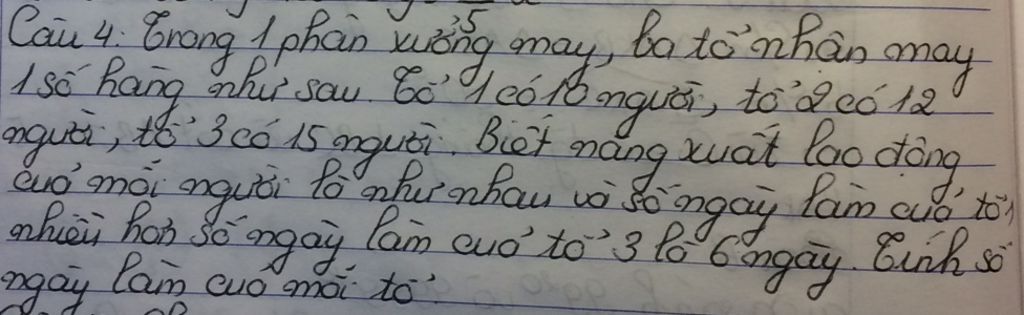 Câu 4: Trong 1 phân xưởng may, ba tổ nhân may
1 số hàng như sau. Tổ 1 có 10 người, tổ 2 có 12
người, tổ 3 có 15 người. Biết năng xuất lao động
cuả mỗi người là như nhau và số ngày làm cuả tổ 1
nhiều hơn số ngày làm cuả tổ 3 là 6 ngày. Tính số
ngày làm cuả mỗi tổ